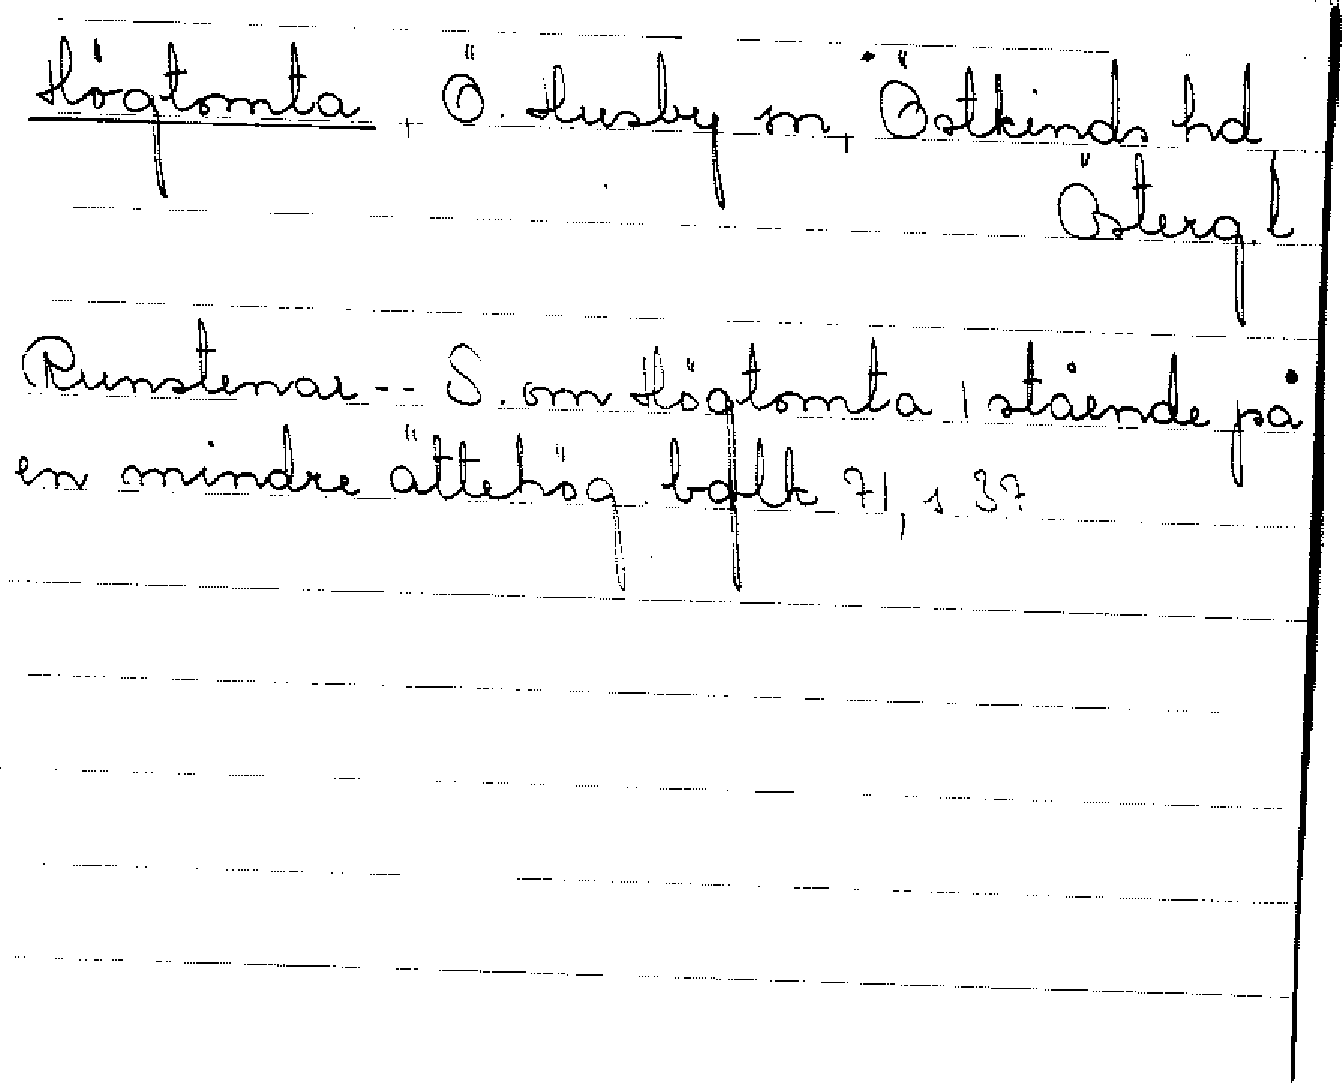 Högtomta, Ö. Husby sn, Östkinds hd
Österg. l
Runstenar -- S. om Högtomta, stående på
en mindre ättehög. bglk 71, s 37